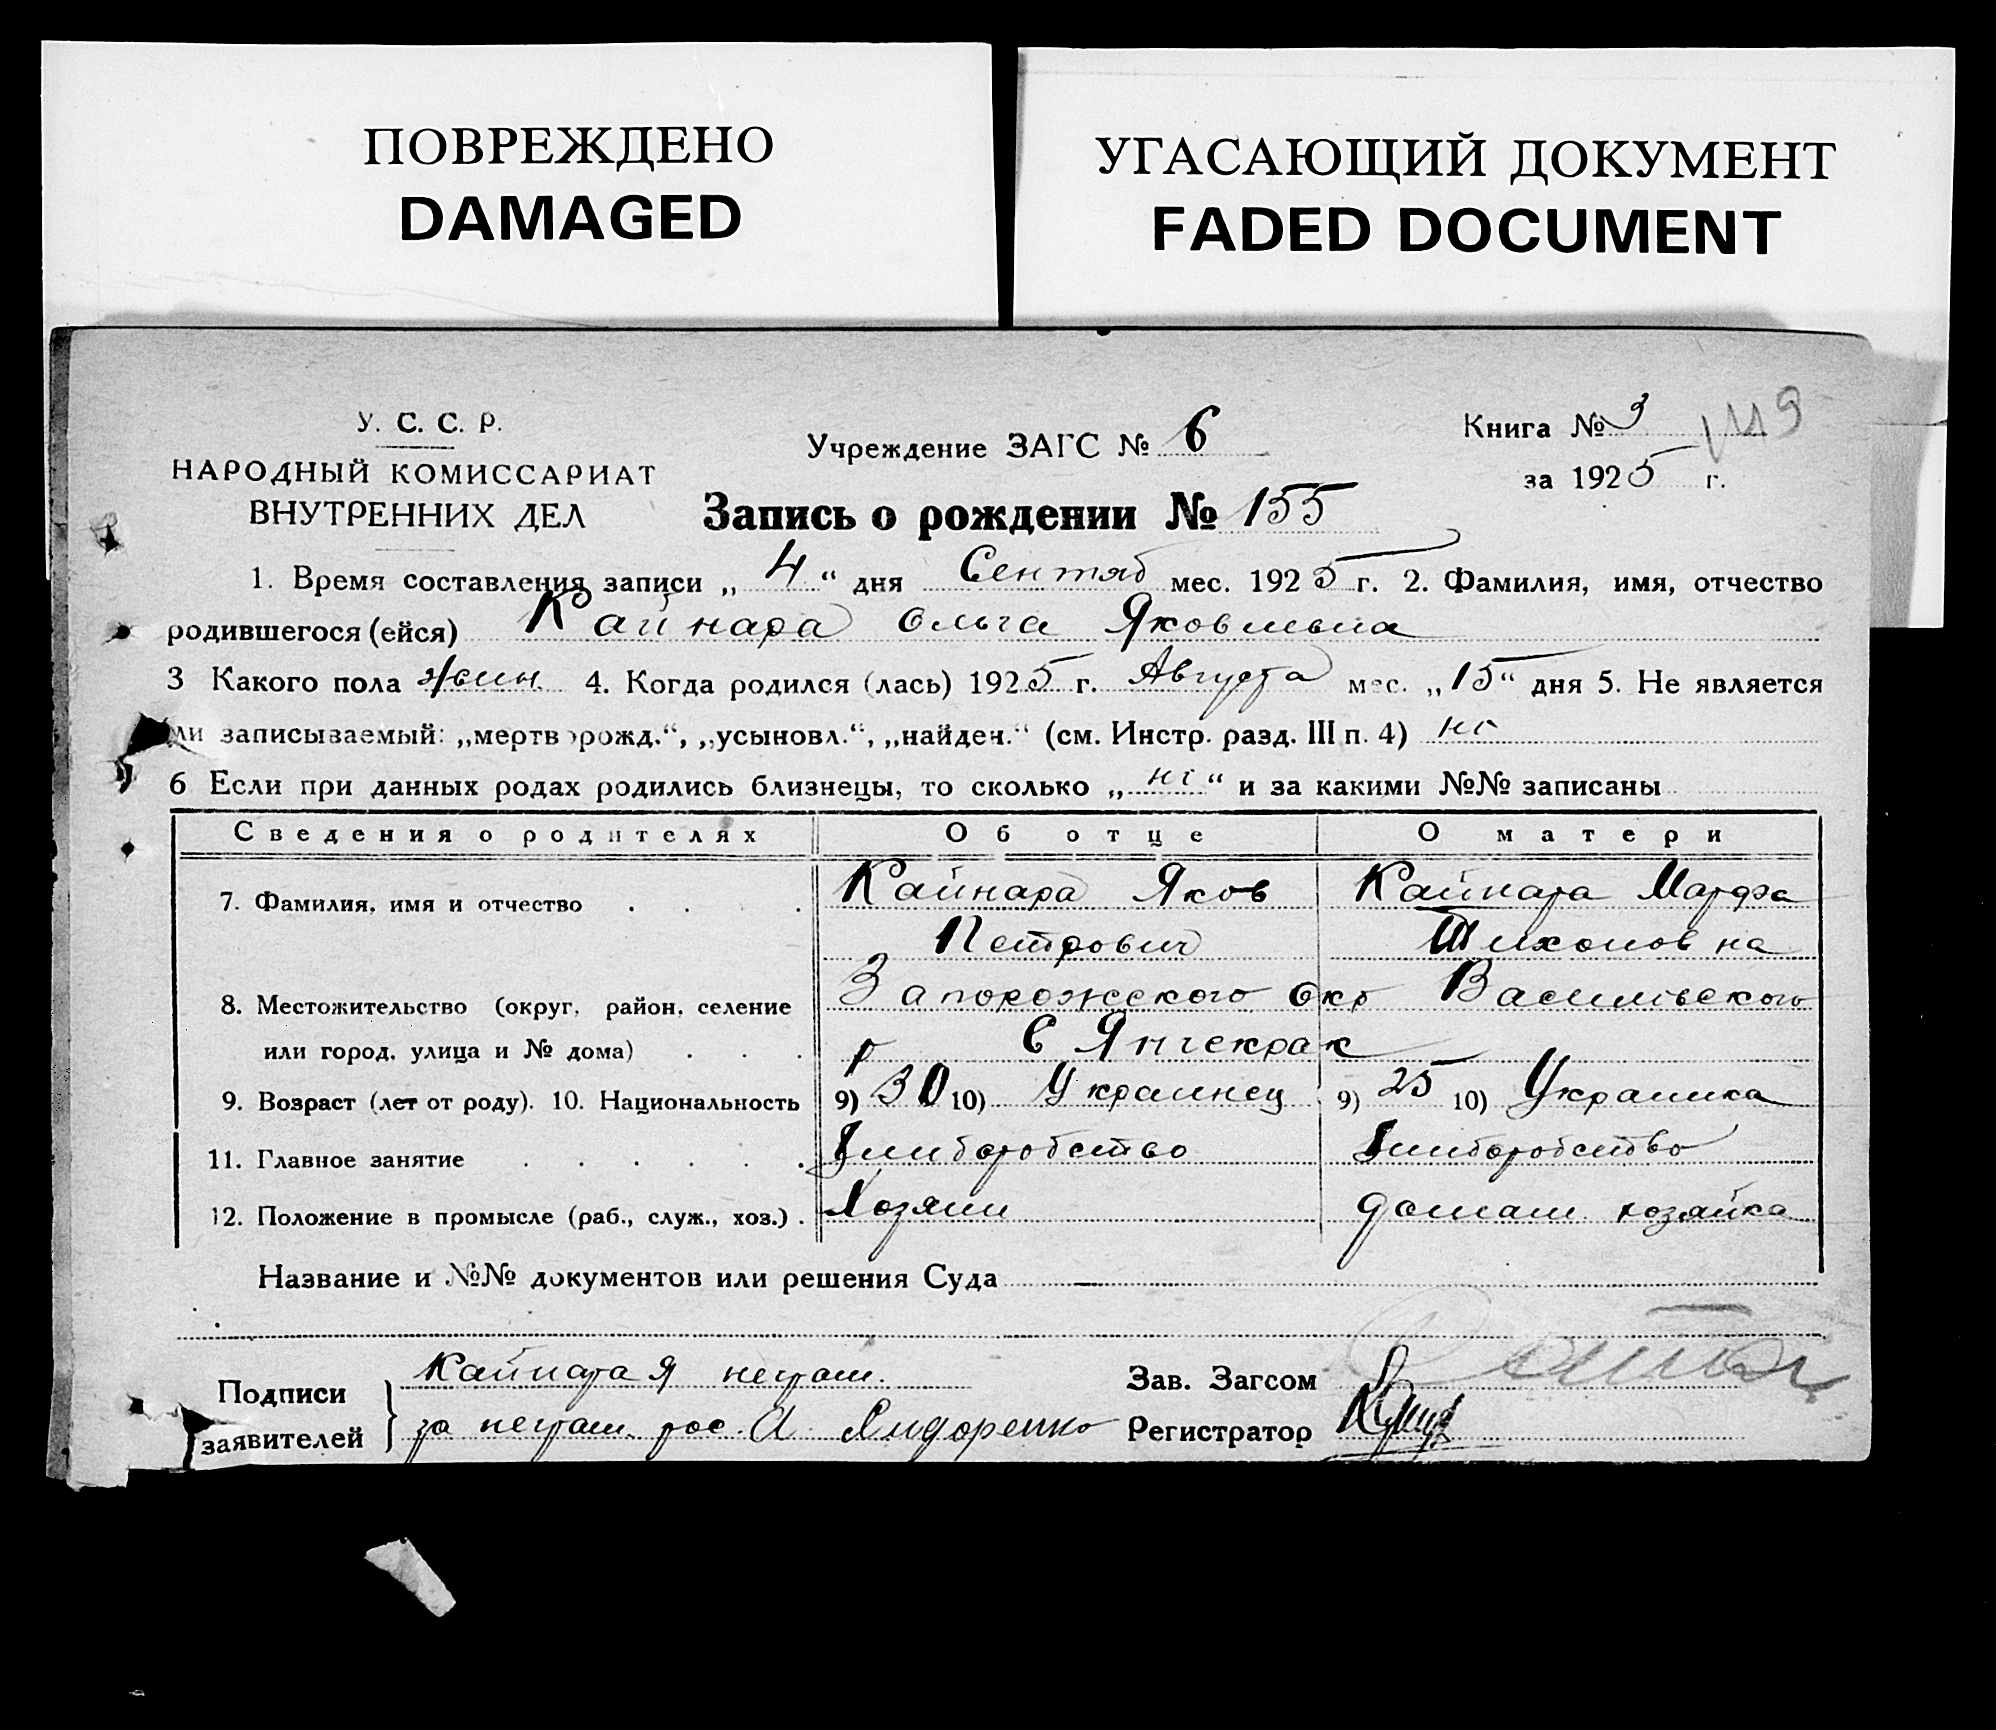 ПОВРЕЖДЕНО
DAMAGED
УГАСАЮЩИЙ ДОКУМЕНТ
FADED DOCUMENT
У. С. С. Р.
НАРОДНЫЙ КОМИССАРИАТ
ВНУТРЕННИХ ДЕЛ
Учреждение ЗАГС № 6
Книга № 3
за 1925 г.
Запись о рождении № 155
1. Время составления записи „ 4 “ дня Сентяб мес. 1925 г. 2. Фамилия, имя, отчество
родившегося (ейся) Кайнара Ольга Яковлевна
3 Какого пола жен. 4. Когда родился (лась) 1925 г. Августа мес. „ 15 “ дня 5. Не является
ли записываемый: „мертворожд.“, „усыновл.“, „найден.“ (см. Инстр. разд. III п. 4) нг
6 Если при данных родах родились близнецы, то сколько „ нг “ и за какими №№ записаны
Сведения о родителях Об отце О матери
7. Фамилия, имя и отчество . . . Кайнара Яков Кайнара Марфа
Петрович Тихоновна
8. Местожительство (округ, район, селение Запорожского Окр Васильевского
или город, улица и № дома) . . . р С Янчекрак
9. Возраст (лет от роду). 10. Национальность 9) 30 10) Украинец 9) 25 10) Украинка
11. Главное занятие . . . . . . Хлиборобство Хлиборобство
12. Положение в промысле (раб., служ., хоз.) . Хозяин домаш хозяйка
Название и №№ документов или решения Суда —
Подписи заявителей } Кайнара Я неграм.
за неграм. рос. А. Сидоренко
Зав. Загсом
Регистратор